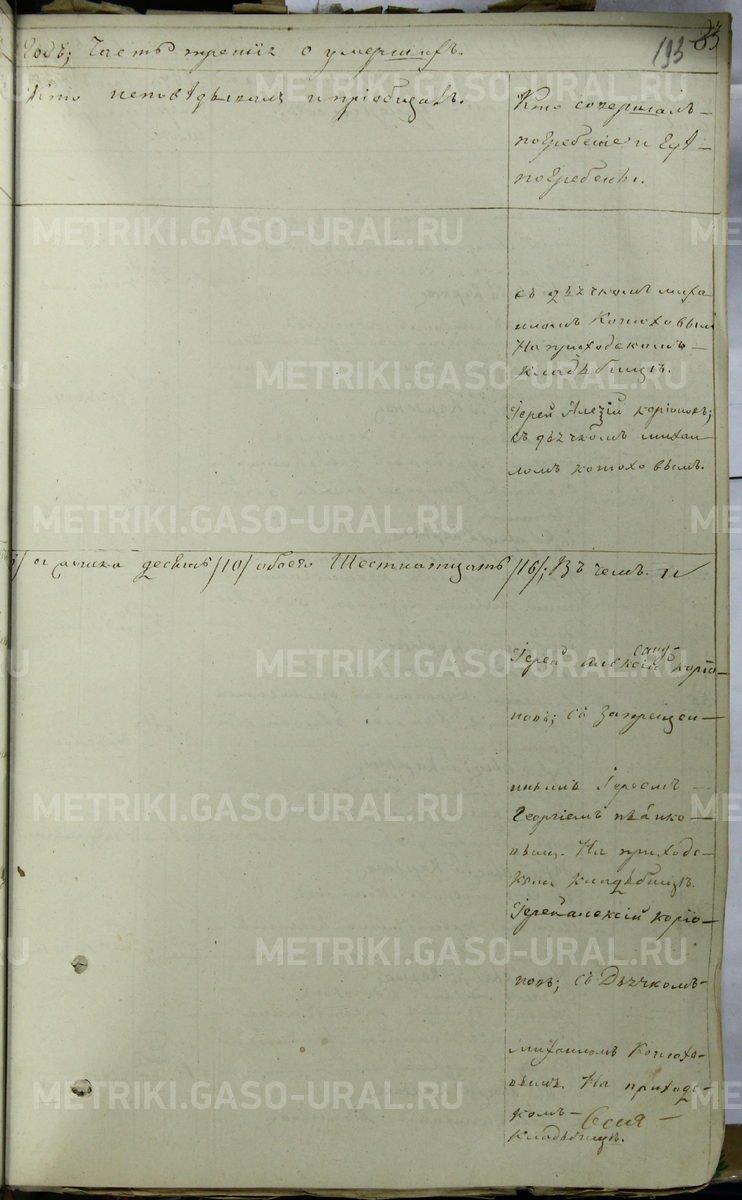 193 83
Годъ; Часть третія о умершихъ.
Кто исповѣдывалъ и пріобщалъ.
Кто совершалъ
погребеніе и гдѣ
погребены.
съ дьячкомъ миха
иломъ Конюховымъ
На приходскомъ
кладъбищѣ.
Іерей Алеѯій коріоновъ;
съ дьячкомъ михаи
ломъ конюховымъ.
десять /10/ обоего Шестнатцать /16/; Въ чемъ. и
Іерей Алексій коріо
новъ; съ Запрещен
ннымъ Іереемъ
Георгіемъ
вымъ. На приходс
комъ кладъбищѣ.
Іерей алексій коріо
новъ; съ Дьячкомъ
михаиломъ Конюхо
вымъ. На приходс
комъ
кладъбищѣ.
METRIKI.GASO-URAL.RU